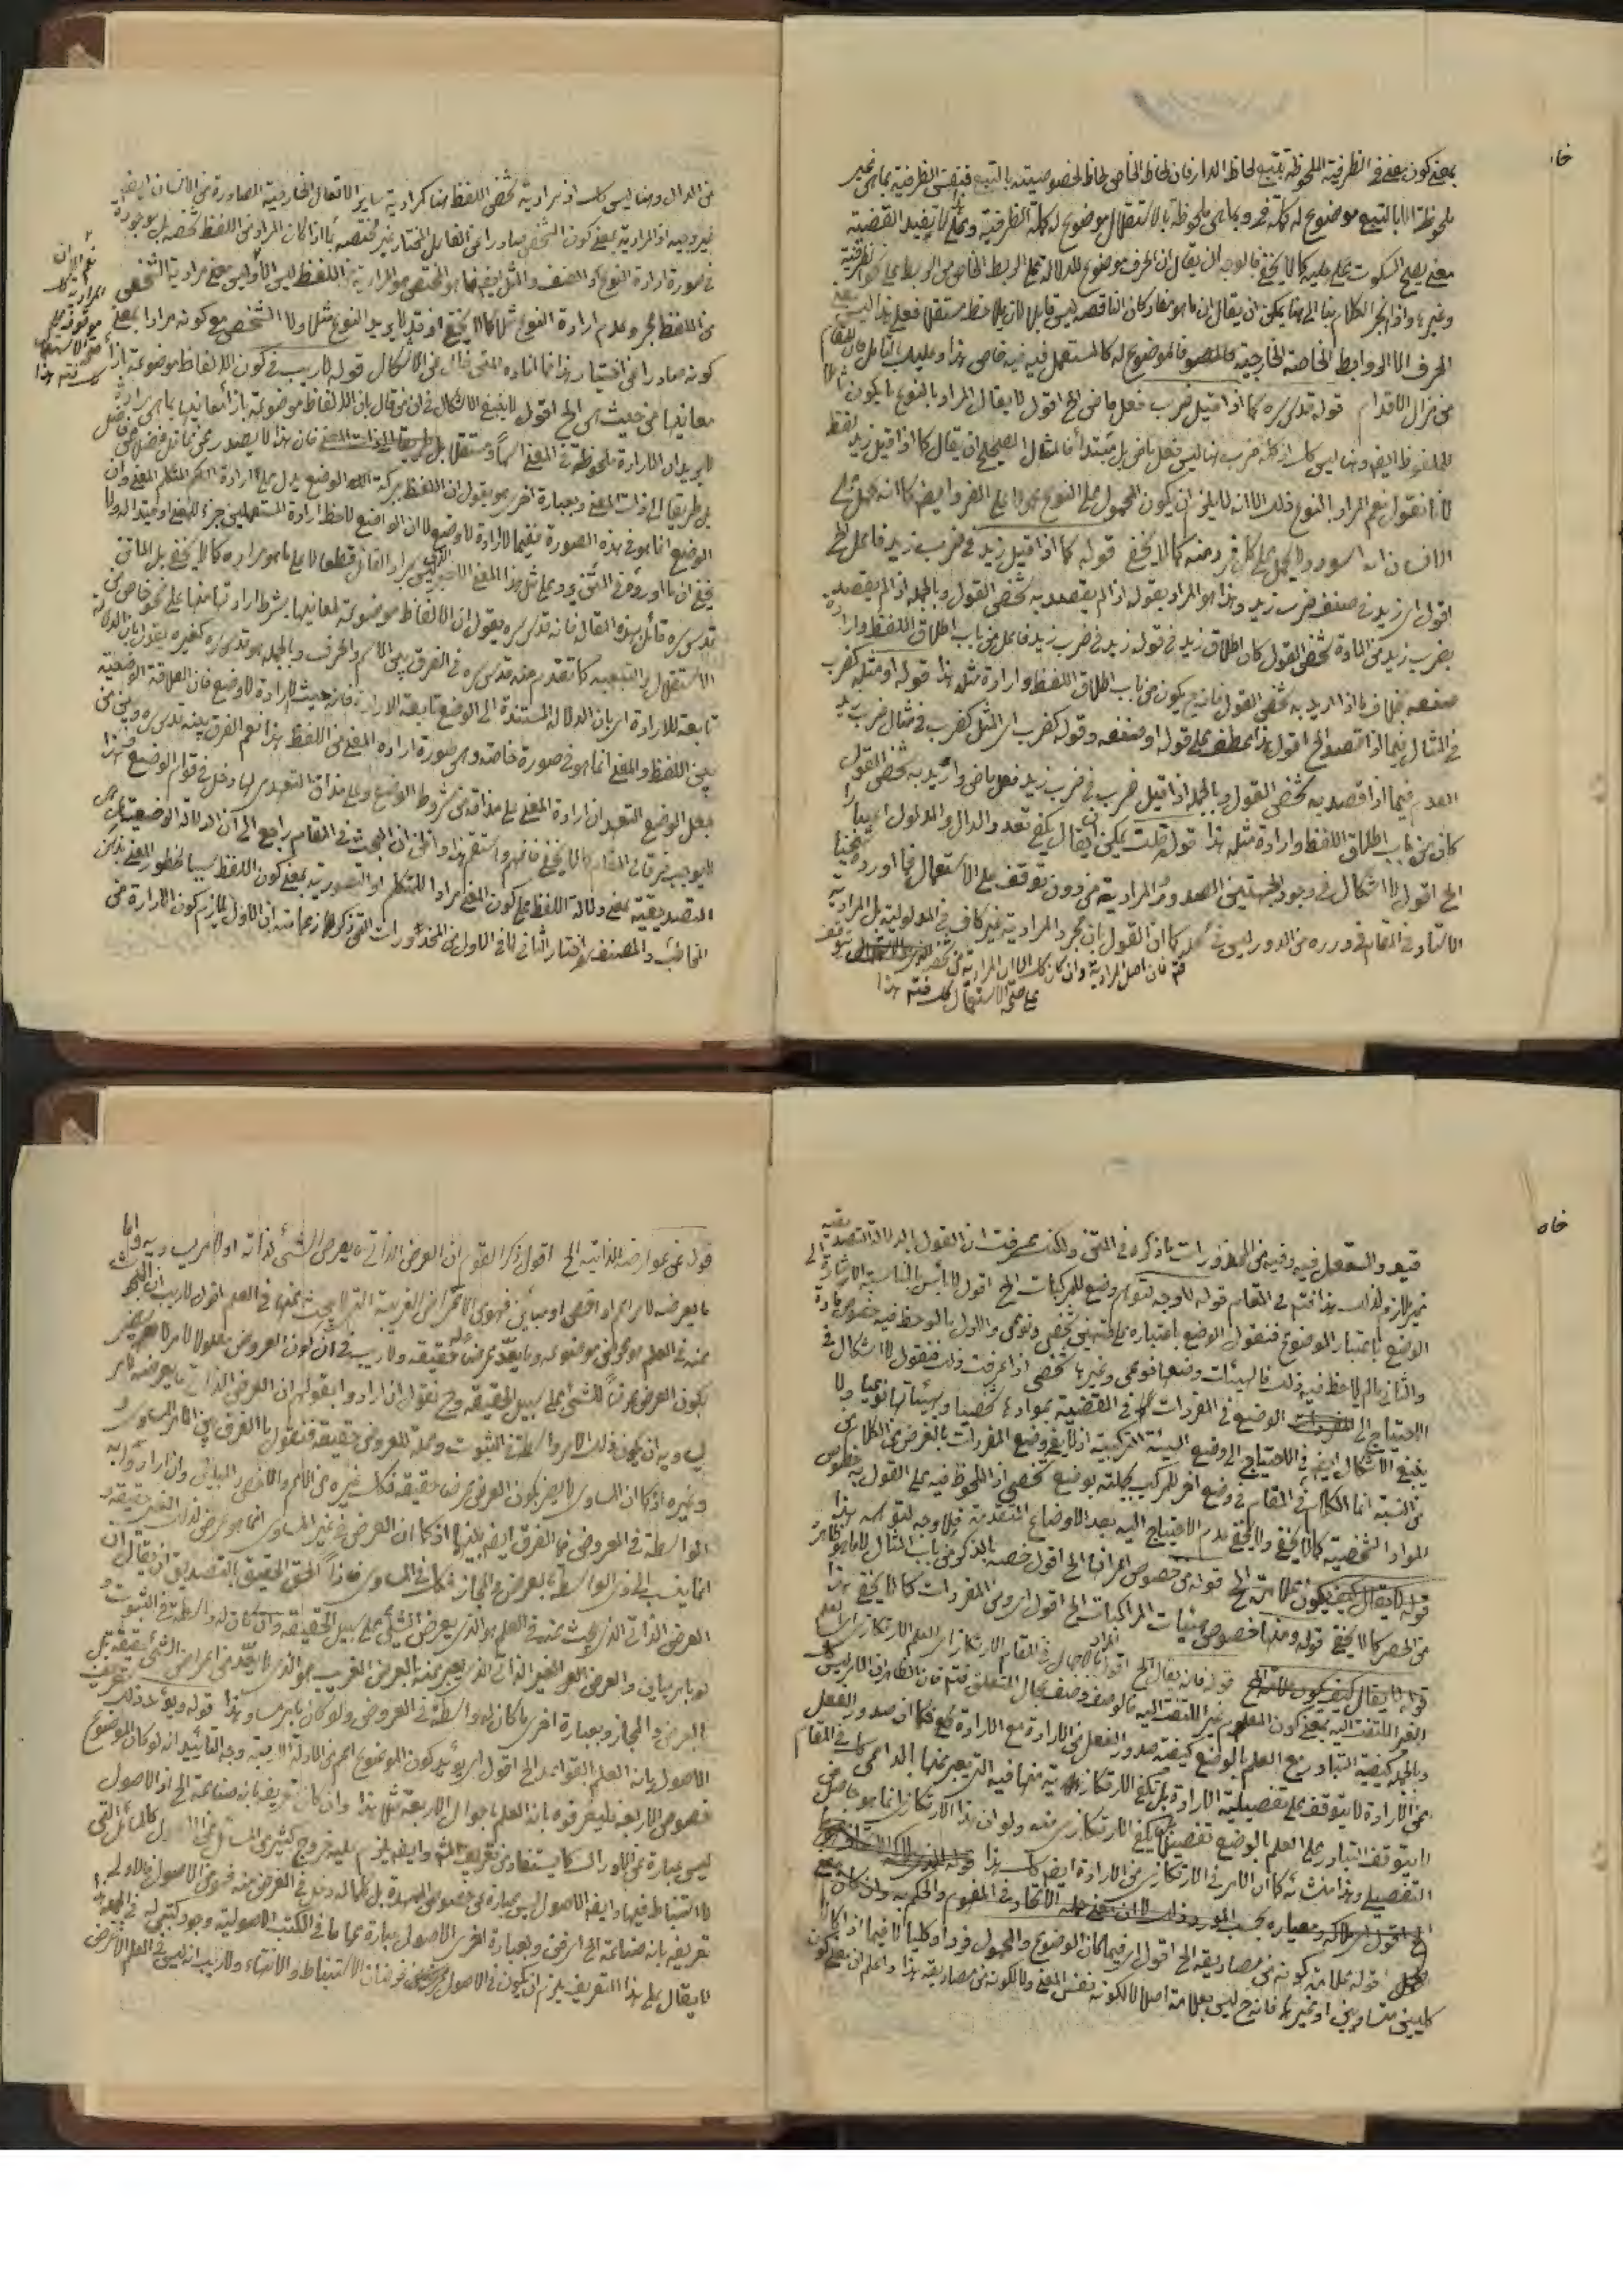 بمعنى كون معنى في الظرفية الملحوظة بتبع لحاظ الدار فان لحاظ الخاص لحاظ لخصوصيته بالتبع فنفس الظرفية بما هي غير
ملحوظة الا بالتبع موضوع له كلمة في وبما هي ملحوظة بالاستقلال موضوع له كلمة الظرفية
معنى يصح السكوت عليه كما لا يخفى فالوجه ان يقال ان الحرف موضوع للدلالة على الربط الخاص من الربط على نحو الظرفية
وغيرها واذا انجر الكلام بنا الى هنا يمكن ان يقال ان ما هو مفاد كان الناقصة ليس قابلا لان يلاحظ مستقلا فعلى هذا ليس معنى
الحرف الا الروابط الخاصة الخارجية فالموضوع له كالمستعمل فيه فيه خاص هذا وعليك بالتامل فان المقام
من مزال الاقدام قوله قدس سره كما اذا قيل ضرب فعل ماض الخ اقول لا يقال المراد بالنوع ما يكون شاملا
للملفوظ ايضا وهنا ليس كك اذ كلمة ضرب هنا ليس فعل ماض بل مبتدا فالمثال الصحيح ان يقال كما اذا قيل زيد لفظ
لانا نقول نعم المراد بالنوع ذلك الا انه لا يلزم ان يكون المحمول على النوع محمولا على الفرد ايضا كما انه يحمل على
الانسان انه اسود ولا يحمل على كل فرد منه كما لا يخفى قوله كما اذا قيل زيد في ضرب زيد فاعل الخ
اقول اى زيد في صنف ضرب زيد وهذا هو المراد بقوله اذا لم يقصد به شخص القول وبالجملة اذا لم يقصد
بضرب زيد في المادة شخص القول كان اطلاق زيد في قوله زيد في ضرب زيد فاعل من باب اطلاق اللفظ وارادة
صنفه بخلاف ما اذا اريد به شخص القول فانه ح يكون من باب اطلاق اللفظ وارادة مثله هذا قوله او مثله كضرب
في المثال فيما اذا قصد الخ اقول هذا عطف على قوله او صنفه وقوله كضرب اى المثل كضرب في مثال ضرب زيد
فيما اذا قصد به شخص القول وبالجملة اذا قيل ضرب في ضرب زيد فعل ماض واريد به شخص القول
كان من باب اطلاق اللفظ وارادة مثله هذا قوله قلت يمكن ان يقال يكفي تعدد الدال والمدلول اعتبارا
الخ اقول لا اشكال في وجود الجهتين الصدور والمرادية من دون توقف على الاستعمال فما اورده شيخنا
الاستاد في المقام في درره من الدور ليس في محله كما ان القول بان مجرد المرادية غير كاف في المدلولية بل المرادية
فتم فان اصل المرادية وان كان كك الا ان المرادية من شخص
على صحة الاستعمال كك فتم هذا
من الدال وهنا ليس كك اذ مرادية شخص اللفظ هنا كمرادية ساير الافعال الخارجية الصادرة من الانسان ايضا
غير وجيه اذ المرادية بمعنى كون الشخص صادرا عن الفاعل المختار غير مختصة بما اذا كان المراد من اللفظ شخصه بل موجودة
في صورة ارادة النوع او الصنف والمثل ايضا فما هو المختص هو المرادية من اللفظ ليس الا وليس معنى مرادية الشخص
من اللفظ مجرد عدم ارادة النوع مثلا كما لا يخفى اذ قد لا يريد النوع مثلا ولا الشخص هو كونه مرادا بمعنى
كونه صادرا عن اختيار هذا فما افاده المتن خال من الاشكال قوله لا ريب في كون الالفاظ موضوعة بازاء
معانيها من حيث هي الخ اقول لا ينبغي الاشكال في ان من قال بان الالفاظ موضوعة بازاء معانيها بما هي مرادة
لا يريد ان الارادة ملحوظة في المعنى اسما ومستقلا بل فان هذا لا يصدر من عاقل فضلا عن فاضل
بل طريقا الى ذات المعنى وبعبارة اخرى هو يقول ان اللفظ ببركة الوضع يدل على ارادة المتكلم المعنى وان
الوضع انما هو في هذه الصورة ففيما لا ارادة لا وضع لا ان الواضع لاحظ ارادة المستعملين جزء للمعنى او قيدا له ولا
يخفى ان ما اورده في المتن يرد على مثل هذا المعنى مراد القائل قطعا لا على ما هو مراده كما لا يخفى بل الماتن
قدس سره قائل بهذا المقال فانه قدس سره يقول ان الالفاظ موضوعة لمعانيها بشرط ارادتها منها على نحو خاص من
الاستقلال والتبعية كما تقدم منه قدس سره في الفرق بين الاسم والحرف وبالجملة هو قدس سره كغيره يقول بان الدلالة
تابعة للارادة اى بان الدلالة المستندة الى الوضع تابعة الارادة فانه حيث لا ارادة لا وضع فان العلاقة الوضعية
بين اللفظ والمعنى انما هو في صورة خاصة وهى صورة ارادة المعنى من اللفظ هذا نعم الفرق بينه قدس سره وبين من
جعل الوضع التعهد ان ارادة المعنى على مذاقه من شروط الوضع وعلى مذاق التعهدى لها دخل في قوام الوضع وهذا
لا يوجب فرقا في المقام كما لا يخفى فافهم واستقم هذا واظن ان البحث في المقام راجع الى ان الدلالة الوضعية هل هي
التصديقية بمعنى دلالة اللفظ على كون المعنى مرادا للمتكلم او التصورية بمعنى كون اللفظ سببا لخطور المعنى بذهن
المخاطب والمصنف اختار الثاني لما في الاول من المحذورات التي ذكرها زعما منه ان الاول يلازم كون الارادة من
قيود المستعمل فيه وفيه من المحذورات ما ذكره في المتن ولكنك عرفت ان القول بالدلالة التصديقية
غير ملازم لذلك هذا فتم في المقام قوله لا وجه لتوهم وضع للمركبات الخ اقول لا بأس بالمناسبة الاشارة الى
الوضع باعتبار الموضوع فنقول الوضع باعتباره على قسمين شخصي ونوعي والاول ما لوحظ فيه خصوص مادة
والثاني ما لم يلاحظ فيه ذلك فالهيئات وضعها نوعي وغيرها شخصي اذا عرفت ذلك فنقول لا اشكال في
الاحتياج الى الوضع في المفردات في القضية بموادها شخصيا وهيئاتها نوعيا ولا
ينبغي الاشكال ايضا في الاحتياج الى وضع الهيئة التركيبية اذ لا يفي وضع المفردات بالغرض من الكلام
من النسبة انما الكلام في المقام في وضع اخر للمركب بجملته بوضع شخصي اذ الملحوظ فيه على القول به خصوص
المواد الشخصية كما لا يخفى ولا يخفى عدم الاحتياج اليه بعد الاوضاع المتقدمة فلا وجه لتوهمه هذا
قوله من خصوص اعرابها الخ اقول خصه بالذكر من باب المثال
من الحصر كما لا يخفى قوله ومنها خصوص هيئات المركبات الخ اقول اى ومن المفردات كما لا يخفى هذا
قوله فانه يقال الخ اقول الاجمال في المقام الارتكازى العلم الارتكازى
الغير الملتفت اليه بمعنى كون المعلوم غير الملتفت اليه فالوصف وصف بحال المتعلق فتم فان الظاهر ان الامر ليس
وبالجملة كيفية التبادر مع العلم بالوضع كيفية صدور الفعل من الارادة مع الارادة فكما ان صدور الفعل
عن الارادة لا يتوقف على تفصيلية الارادة بل تكفي الارتكازية منها فيه التي يعبر عنها بالداعى كك في المقام
لا يتوقف التبادر على العلم بالوضع تفصيلا بل يكفي الارتكازى منه ولو ان هذا الارتكازى انما هو حاصل من
التفصيلى وهذا منشأه كما ان الامر في الارتكازى من الارادة ايضا كك هذا
قوله علامة كونه من مصاديقه الخ اقول اى فيما كان الموضوع والمحمول فردا وكليا لا فيما اذا كانا
كليين متساويين او غيرهما فانه ح ليس بعلامة اصلا لا لكونه نفس المعنى ولا لكونه من مصاديقه هذا واعلم ان معنى كون
قوله عن عوارضه الذاتية الخ اقول ذكر القوم ان العرض الذاتي ما يعرض الشيء لذاته او لامر يساويه واما
ما يعرضه لامر اعم او اخص او مباين فهو من الاعراض الغريبة التي لا يبحث عنها في العلم اقول لا ريب ان المبحوث
عنه في العلم هو محمولى موضوعه وما يعد عرضا له حقيقة ولا ريب في ان كون العروض معلولا لامر لا يضر
بكون العرض عرضا للشيء على سبيل الحقيقة وح نقول ان ارادوا بقولهم ان العرض الذاتي ما يعرضه لامر
يساويه ان يكون ذلك الامر واسطة في الثبوت وعلة للعروض حقيقة فنقول ما الفرق بين الامر المساوى
وغيره اذ كما ان المساوى لا يضر بكون العرض عرض حقيقة فكك غيره من الاعم والاخص والمباين وان ارادوا به
الواسطة في العروض فما الفرق ايضا بينهما اذ كما ان العرض في غير المساوى انما هو عرض لذلك الغير حقيقة و
انما ينسب الى ذى الواسطة بالعرض والمجاز فكك في المساوى فاذاً الحق الحقيق بالتصديق ان يقال ان
العرض الذاتي الذى يبحث عنه في العلم هو الذى يعرض الشيء على سبيل الحقيقة وان كان له واسطة في الثبوت و
لو بامر مباين والعرض الغير الذاتي الذى يعبر عنه بالعرض الغريب هو الذى لا يعد من اعراض الشيء حقيقة بل
بالعرض والمجاز وبعبارة اخرى ما كان له واسطة في العروض ولو كان بامر مساو هذا قوله ويؤيد ذلك تعريف
الاصول بانه العلم بالقواعد الخ اقول اى يؤيد كون الموضوع اعم من الادلة الاربعة وجه التأييد انه لو كان الموضوع
خصوص الاربعة فليعرفوه بانه العلم باحوال الاربعة مثلا هذا وان كان تعريفه بانه صناعة الخ اذ الاصول
ليس عبارة عن كما يستفاد من تعريف المشهور وايضا يلزم عليه خروج كثير من المسائل عن الاصول كالمسائل التي
لا استنباط فيها وايضا الاصول ليس عبارة عن خصوص الممهدة بل كلما له دخل في الغرض منه فهو من الاصول فالاولى
تعريفه بانه صناعة الخ اى فن وبعبارة اخرى الاصول عبارة عما في الكتب الاصولية وجود كتبى له في الجملة هذا
لا يقال على هذا التعريف يلزم ان يكون في الاصول غرضان الاستنباط والانتهاء ولا ريب انه ليس في العلم الا غرض